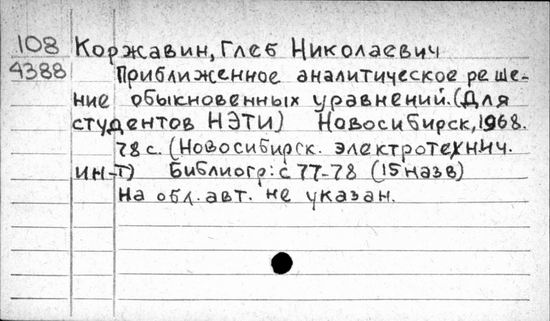 108 Коржавин, Глеб Николаевич
4388 Приближенное аналитическое реше-
ние обыкновенных уравнений. (Для
студентов НЭТИ) Новосибирск, 1968.
78 с. (Новосибирск. электротехнич.
ин-т) Библиогр: с 77-78 (15 назв)
На обл. авт. не указан.